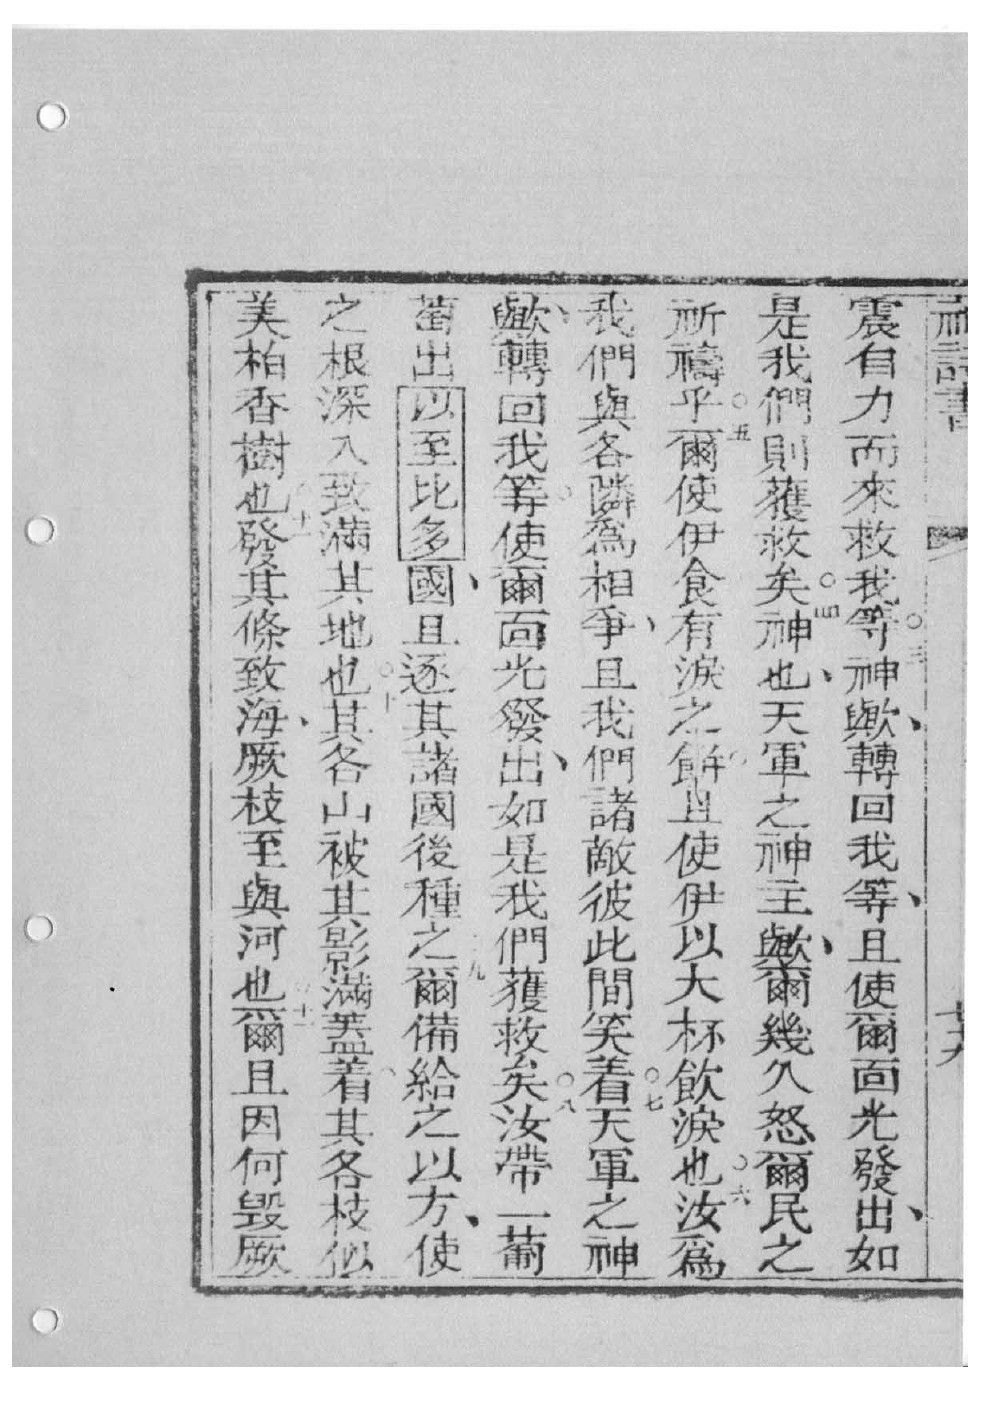 神詩書 七十九
震自力而來救我等○三神歟、轉回我等、且使爾面光發出、如
是我們則獲救矣○四神也、天軍之神主歟、爾幾久怒爾民之
祈禱乎○五爾使伊食有淚之餅○且使伊以大杯飲淚也○六汝為
我們與各隣為相爭、且我們諸敵彼此間笑着○七天軍之神
歟、轉回我等○使爾面光發出、如是我們獲救矣○八汝帶一葡
萄出以至比多國、且逐其諸國後種之○九爾備給之以方、使
之根深入致滿其地也○十其各山被其影滿蓋着○其各枝似
美柏香樹也○十一發其條致海、厥枝至與河也○十二爾且因何毀厥